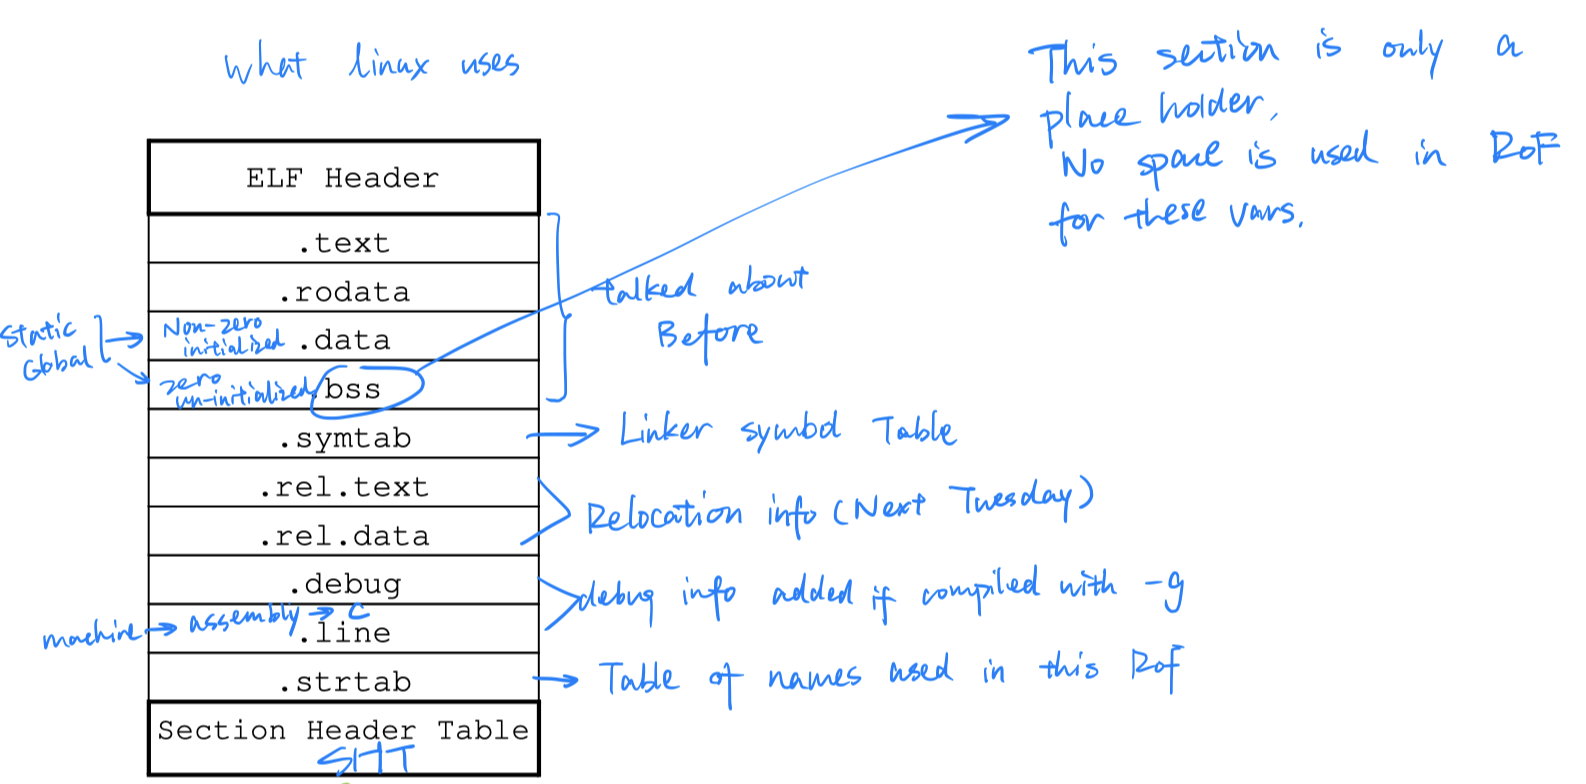 What linux uses
This section is only a
place holder.
No space is used in ROF
for these vars.
ELF Header
.text
.rodata
talked about
Before
Static
Global
Non-zero
initialized
.data
zero
un-initialized
.bss
.symtab
Linker symbol Table
.rel.text
.rel.data
Relocation info (Next Tuesday)
.debug
debug info added if compiled with -g
machine → assembly → C
.line
.strtab
Table of names used in this ROF
Section Header Table
SHT